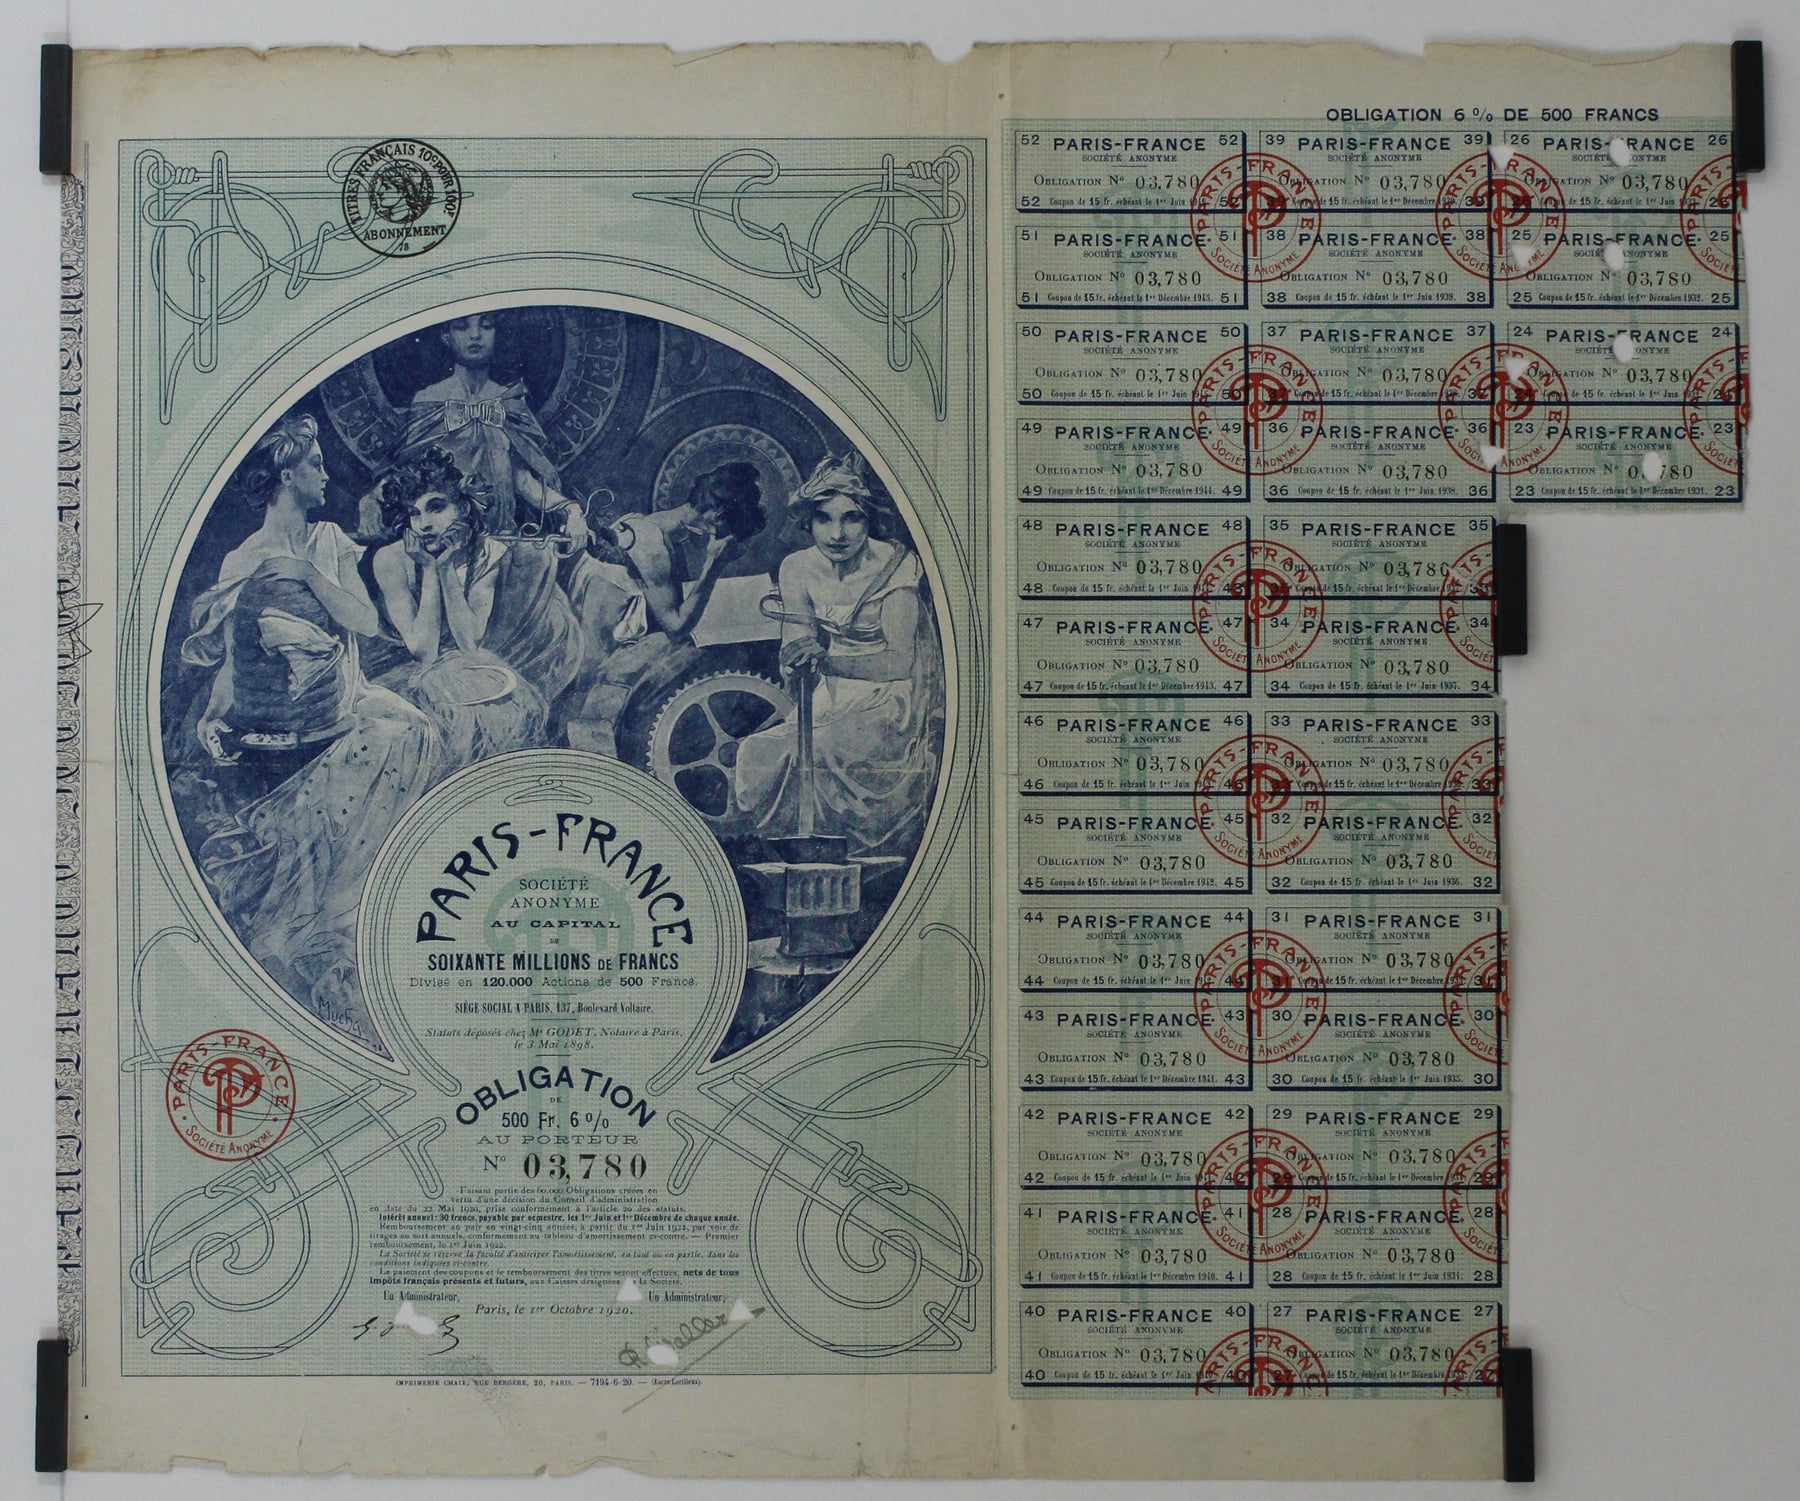 TITRES FRANÇAIS 10c POUR 100F
ABONNEMENT
78
Mucha
PARIS-FRANCE
SOCIÉTÉ
ANONYME
AU CAPITAL
DE
SOIXANTE MILLIONS DE FRANCS
Divisé en 120.000 Actions de 500 Francs.
SIÈGE SOCIAL A PARIS, 137, Boulevard Voltaire.
Statuts déposés chez Me GODET, Notaire à Paris,
le 3 Mai 1898.
OBLIGATION
DE
500 Fr. 6 %
AU PORTEUR
No 03,780
Faisant partie des 60.000 Obligations créées en
vertu d'une décision du Conseil d'administration
en date du 22 Mai 1920, prise conformément à l'article 20 des statuts.
Intérêt annuel: 30 francs, payable par semestre, les 1er Juin et 1er Décembre de chaque année.
Remboursement au pair en vingt-cinq années, à partir du 1er Juin 1922, par voie de
tirages au sort annuels, conformément au tableau d'amortissement ci-contre. — Premier
remboursement, le 1er Juin 1922.
La Société se réserve la faculté d'anticiper l'amortissement, en tout ou en partie, dans les
conditions indiquées ci-contre.
Le paiement des coupons et le remboursement des titres seront effectués, nets de tous
impôts français présents et futurs, aux Caisses désignées la Société.
Un Administrateur,
Un Administrateur,
Paris, le 1er Octobre 1920.
PARIS-FRANCE
SOCIÉTÉ ANONYME
IMPRIMERIE CHAIX, RUE BERGÈRE, 20, PARIS. — 7194-6-20. — (Encre Lorilleux).
OBLIGATION 6 % DE 500 FRANCS
52 PARIS-FRANCE 52
SOCIÉTÉ ANONYME
OBLIGATION No 03,780
52 Coupon de 15 fr. échéant le 1er Juin 52
39 PARIS-FRANCE 39
SOCIÉTÉ ANONYME
OBLIGATION No 03,780
39 Coupon de 15 fr. échéant le 1er Décembre 39
26 PARIS-FRANCE 26
SOCIÉTÉ ANONYME
OBLIGATION No 03,780
26 Coupon de 15 fr. échéant le 1er Juin 26
51 PARIS-FRANCE 51
SOCIÉTÉ ANONYME
OBLIGATION No 03,780
51 Coupon de 15 fr. échéant le 1er Décembre 1945. 51
38 PARIS-FRANCE 38
SOCIÉTÉ ANONYME
OBLIGATION No 03,780
38 Coupon de 15 fr. échéant le 1er Juin 1939. 38
25 PARIS-FRANCE 25
SOCIÉTÉ ANONYME
OBLIGATION No 03,780
25 Coupon de 15 fr. échéant le 1er Décembre 1932. 25
50 PARIS-FRANCE 50
SOCIÉTÉ ANONYME
OBLIGATION No 03,780
50 Coupon de 15 fr. échéant le 1er Juin 50
37 PARIS-FRANCE 37
SOCIÉTÉ ANONYME
OBLIGATION No 03,780
37 Coupon de 15 fr. échéant le 1er Décembre 37
24 PARIS-FRANCE 24
SOCIÉTÉ ANONYME
OBLIGATION No 03,780
24 Coupon de 15 fr. échéant le 1er Juin 24
49 PARIS-FRANCE 49
SOCIÉTÉ ANONYME
OBLIGATION No 03,780
49 Coupon de 15 fr. échéant le 1er Décembre 1944. 49
36 PARIS-FRANCE 36
SOCIÉTÉ ANONYME
OBLIGATION No 03,780
36 Coupon de 15 fr. échéant le 1er Juin 1938. 36
23 PARIS-FRANCE 23
SOCIÉTÉ ANONYME
OBLIGATION No 0 780
23 Coupon de 15 fr. échéant le 1er Décembre 1931. 23
48 PARIS-FRANCE 48
SOCIÉTÉ ANONYME
OBLIGATION No 03,780
48 Coupon de 15 fr. échéant le 1er Juin 48
35 PARIS-FRANCE 35
SOCIÉTÉ ANONYME
OBLIGATION No 03,780
35 Coupon de 15 fr. échéant le 1er Décembre 35
47 PARIS-FRANCE 47
SOCIÉTÉ ANONYME
OBLIGATION No 03,780
47 Coupon de 15 fr. échéant le 1er Décembre 1943. 47
34 PARIS-FRANCE 34
SOCIÉTÉ ANONYME
OBLIGATION No 03,780
34 Coupon de 15 fr. échéant le 1er Juin 1937. 34
46 PARIS-FRANCE 46
SOCIÉTÉ ANONYME
OBLIGATION No 03,780
46 Coupon de 15 fr. échéant le 1er Juin 46
33 PARIS-FRANCE 33
SOCIÉTÉ ANONYME
OBLIGATION No 03,780
33 Coupon de 15 fr. échéant le 1er Décembre 33
45 PARIS-FRANCE 45
SOCIÉTÉ ANONYME
OBLIGATION No 03,780
45 Coupon de 15 fr. échéant le 1er Décembre 1942. 45
32 PARIS-FRANCE 32
SOCIÉTÉ ANONYME
OBLIGATION No 03,780
32 Coupon de 15 fr. échéant le 1er Juin 1936. 32
44 PARIS-FRANCE 44
SOCIÉTÉ ANONYME
OBLIGATION No 03,780
44 Coupon de 15 fr. échéant le 1er Juin 44
31 PARIS-FRANCE 31
SOCIÉTÉ ANONYME
OBLIGATION No 03,780
31 Coupon de 15 fr. échéant le 1er Décembre 31
43 PARIS-FRANCE 43
SOCIÉTÉ ANONYME
OBLIGATION No 03,780
43 Coupon de 15 fr. échéant le 1er Décembre 1941. 43
30 PARIS-FRANCE 30
SOCIÉTÉ ANONYME
OBLIGATION No 03,780
30 Coupon de 15 fr. échéant le 1er Juin 1935. 30
42 PARIS-FRANCE 42
SOCIÉTÉ ANONYME
OBLIGATION No 03,780
42 Coupon de 15 fr. échéant le 1er Juin 42
29 PARIS-FRANCE 29
SOCIÉTÉ ANONYME
OBLIGATION No 03,780
29 Coupon de 15 fr. échéant le 1er Décembre 29
41 PARIS-FRANCE 41
SOCIÉTÉ ANONYME
OBLIGATION No 03,780
41 Coupon de 15 fr. échéant le 1er Décembre 1940. 41
28 PARIS-FRANCE 28
SOCIÉTÉ ANONYME
OBLIGATION No 03,780
28 Coupon de 15 fr. échéant le 1er Juin 1934. 28
40 PARIS-FRANCE 40
SOCIÉTÉ ANONYME
OBLIGATION No 03,780
40 Coupon de 15 fr. échéant le 1er Juin 40
27 PARIS-FRANCE 27
SOCIÉTÉ ANONYME
OBLIGATION No 03,780
27 Coupon de 15 fr. échéant le 1er Décembre 27